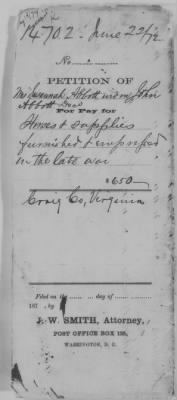 14702. June 22/72
No.
PETITION OF
Mrs Savannah Abbott widow John
Abbott Decd
For Pay for
Stores & supplies
furnished & impressed
in the late war
$650
Craig Co, Virginia
Filed on the day of
187 , by
J. W. SMITH, Attorney,
POST OFFICE BOX
WASHINGTON, D. C.